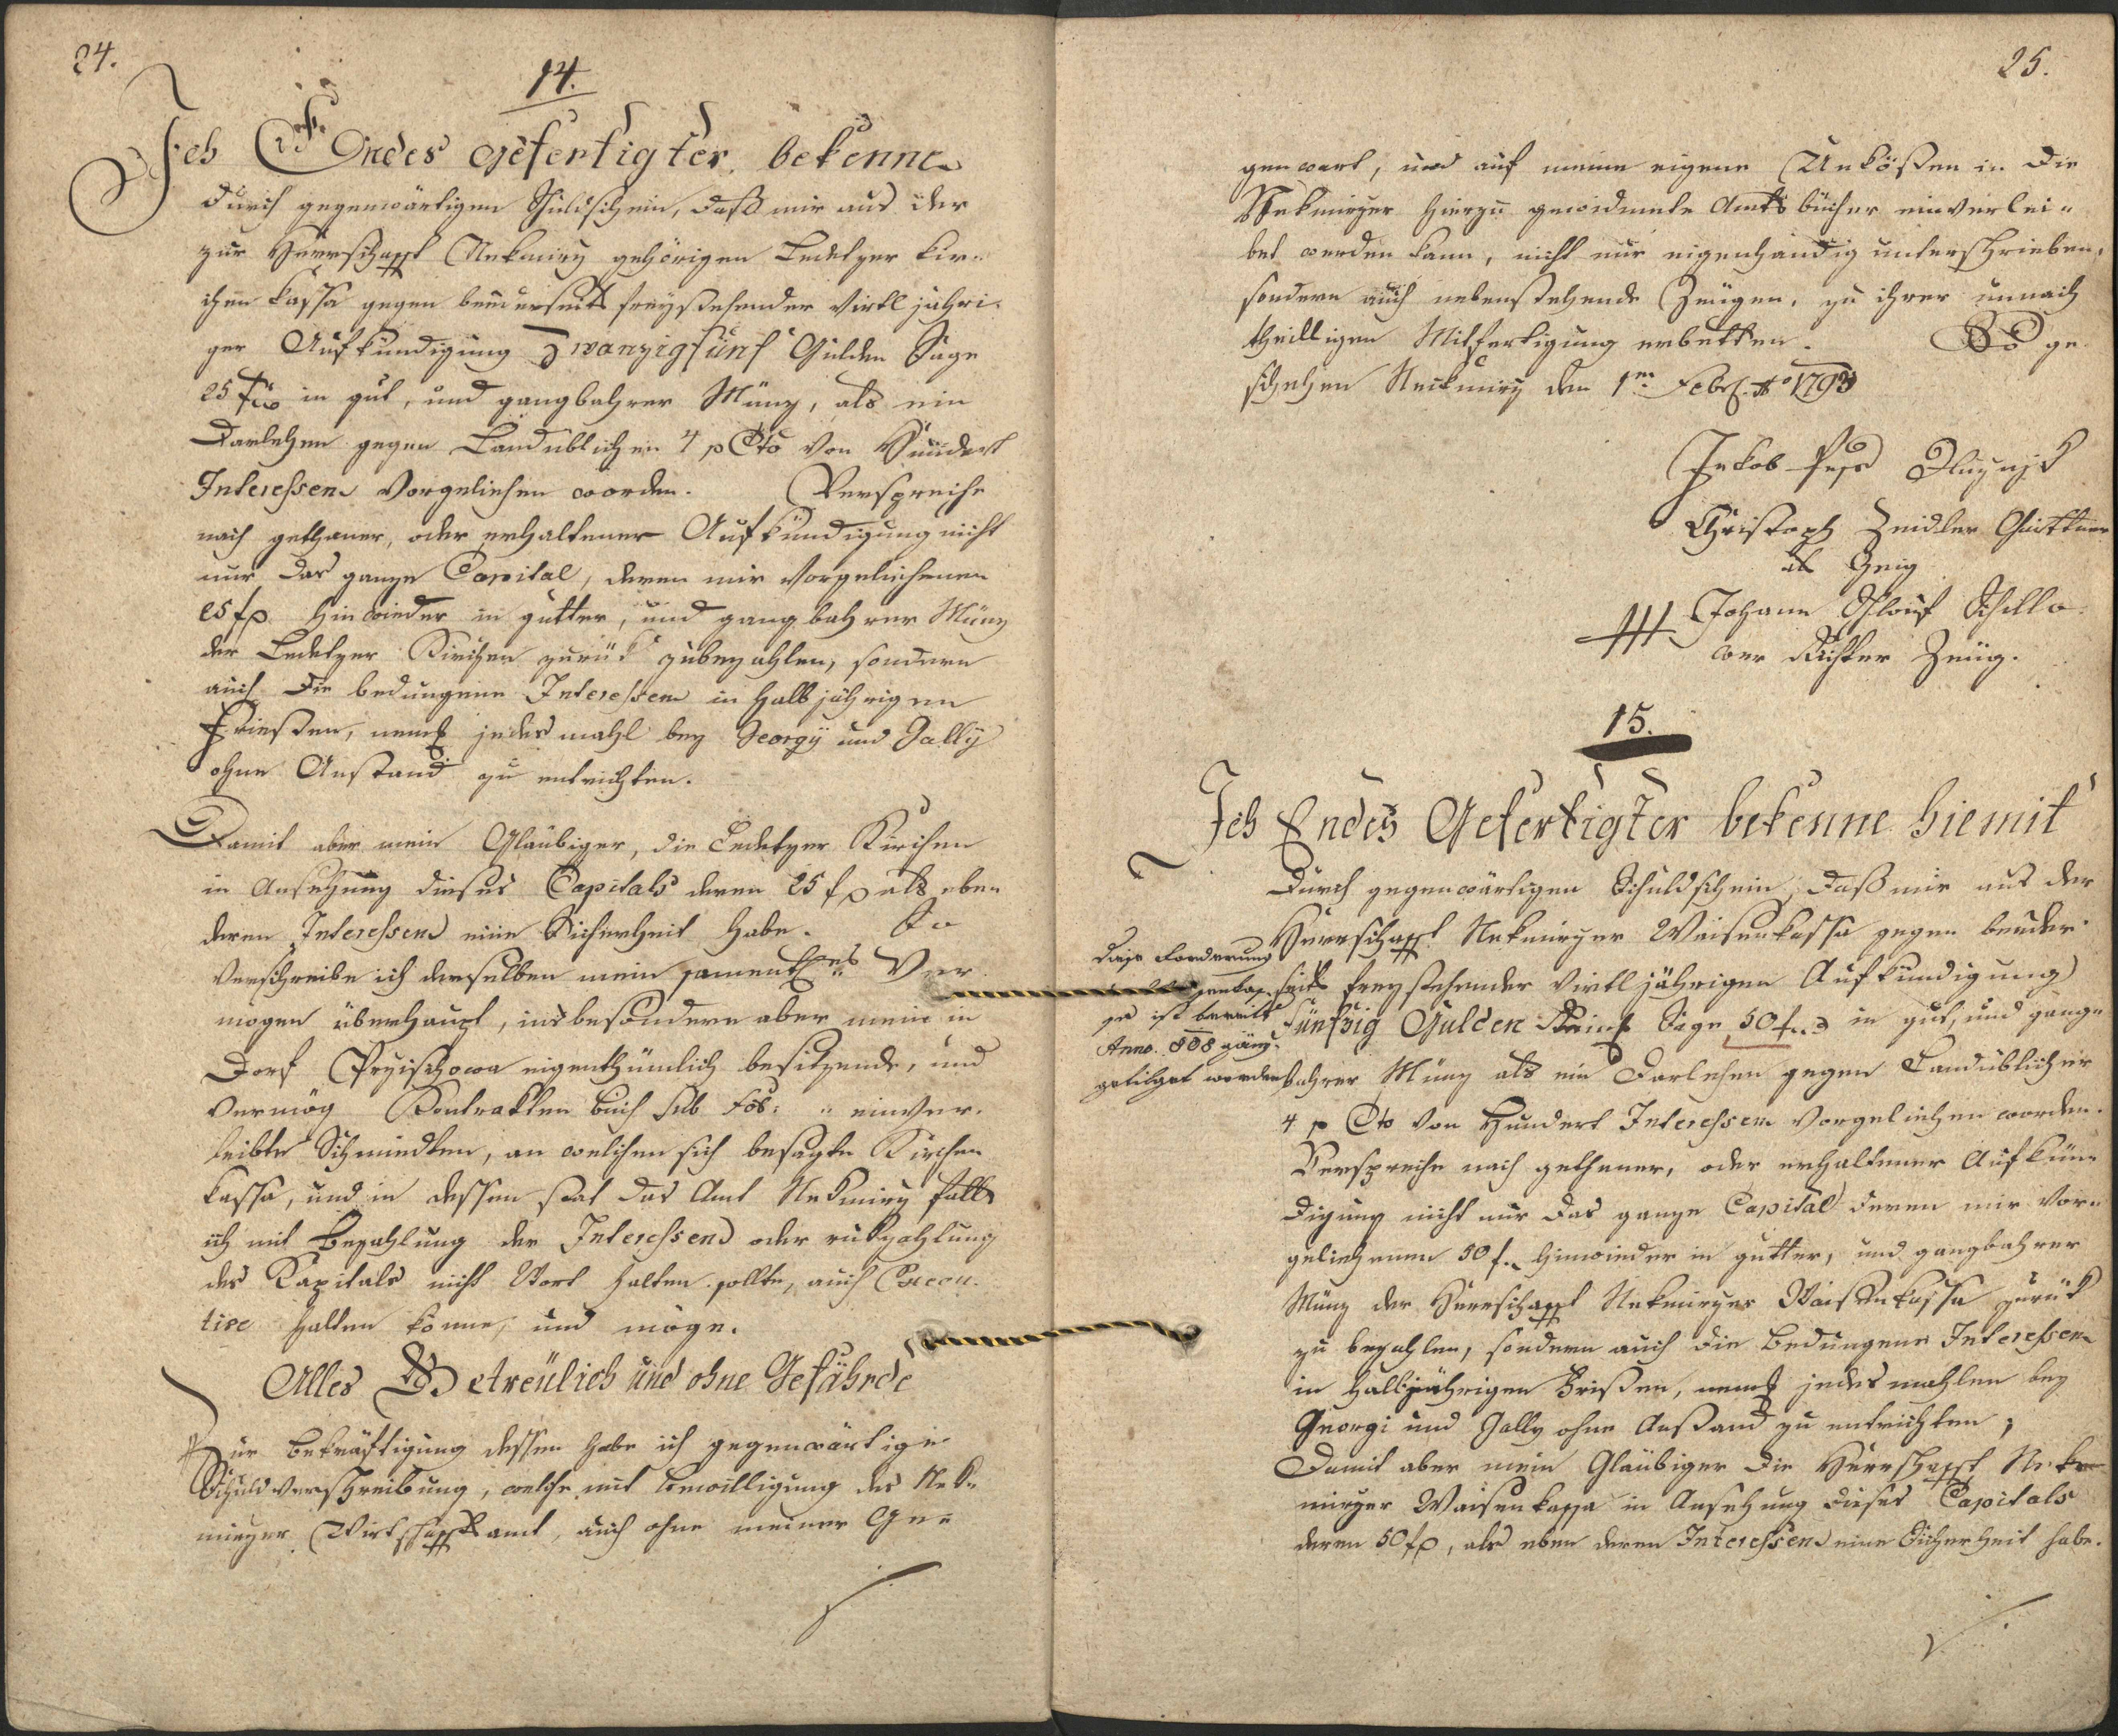 24.
14.
Ich Endes Gefertigter bekenne
durch gegenwärtigen Schuldschein, daß mir aus der
zur Herrschafft Nekmirz gehörigen Ledetzer Kir-
chen Kassa gegen beederseits freystehender Virtljähri-
ger Aufkündigung Zwanzigfünf Gulden Sage
25 f in gut, und gangbahrer Münz, als ein
Darlehen gegen Landüblichen 4 p Cto von Hundert
Interessen vorgeliehen worden. Verspreche
nach gethaner, oder erhaltener Aufkündigung nicht
nur das ganze Capital, deren mir vorgeliehenen
25 f hinwieder in gutter, und gangbahrer Münz
der Ledetzer Kirchen zurük zubezahlen, sondern
auch die bedungene Interessen in halbjährigen
Frießten, neml jedesmahl bey Georgÿ und Gallÿ
ohne Anstand zu entrichten.
Damit aber mein Gläubiger, die Ledetzer Kirchen
in Ansehung dieses Capitals deren 25 f als eben
deren Interessen eine Sicherheit habe. So
verschreibe ich derselben mein sammentles Ver-
mögen überhaupt, insbesondere aber mein in
Dorf Przischowa eigenthümlich besitzende, und
vermög Kontrakten Buch sub Fol: " einver-
leibte Schmiedten, an welchen sich besagte Kirchen
Kassa, und in dessen stat das Amt Nekmirz falls
ich mit Bezahlung der Interessen oder rükzahlung
des Kapitals nicht Wort halten sollte, auch Execu-
tive halten könne, und möge.
Alles Getreülich und ohne Gefährde
Zur Bekräftigung dessen habe ich gegenwärtige
Schuldverschreibung, welche mit Bewilligung des Nek-
mirzer Wirtschafftsamt, auch ohne meiner Ge-
25.
genwart, und auf meine eigene Unkösten in die
Nekmirzer hierzu gewidmete Amtsbücher einverlei-
bet werden kann, nicht nur eigenhändig unterschrieben,
sondern auch nebenstehende Zeügen, zu ihrer unnach
theilligen Mitfertigung erbetten. So ge-
schehen Nekmirz den 1ten Febr. Ao 1793
Jakob
Christoph Zeidler
als Zeig
Johann Schilla-
wer Richter Zeüg.
15.
Ich Endes Gefertigter bekenne hiemit
Durch gegenwärtigen Schuldschein, daß mir aus der
Herrschafft Nekmirzer Waisenkassa gegen beeder-
seits freystehender Virtljährigen Aufkündigung
Fünfzig Gulden Reinl Sage 50 f in gut, und gang-
bahrer Münz als ein Darlehen gegen Landüblicher
4 p Cto von Hundert Interessen vorgeliehen worden.
Verspreche nach gethaner, oder erhaltener Aufkün-
digung nicht nur das ganze Capital deren mir vor-
geliehenen 50 f hinwieder in gutter, und gangbahrer
Münz der Herrschafft Nekmirzer Waisenkassa zurük
zu bezahlen, sondern auch die bedungene Interessen
in halbjährigen Frißten, neml jedesmahlen bey
Georgi und Gally ohne Anstand zu entrichten;
Damit aber mein Gläubiger die Herrschafft Nek-
mirzer Waisenkassa in Ansehung dieses Capitals
deren 50 f, als eben deren Interessen eine Sicherheit habe.
Diese Forderung
ist bereits
Anno 808 gänz.
getilget worden